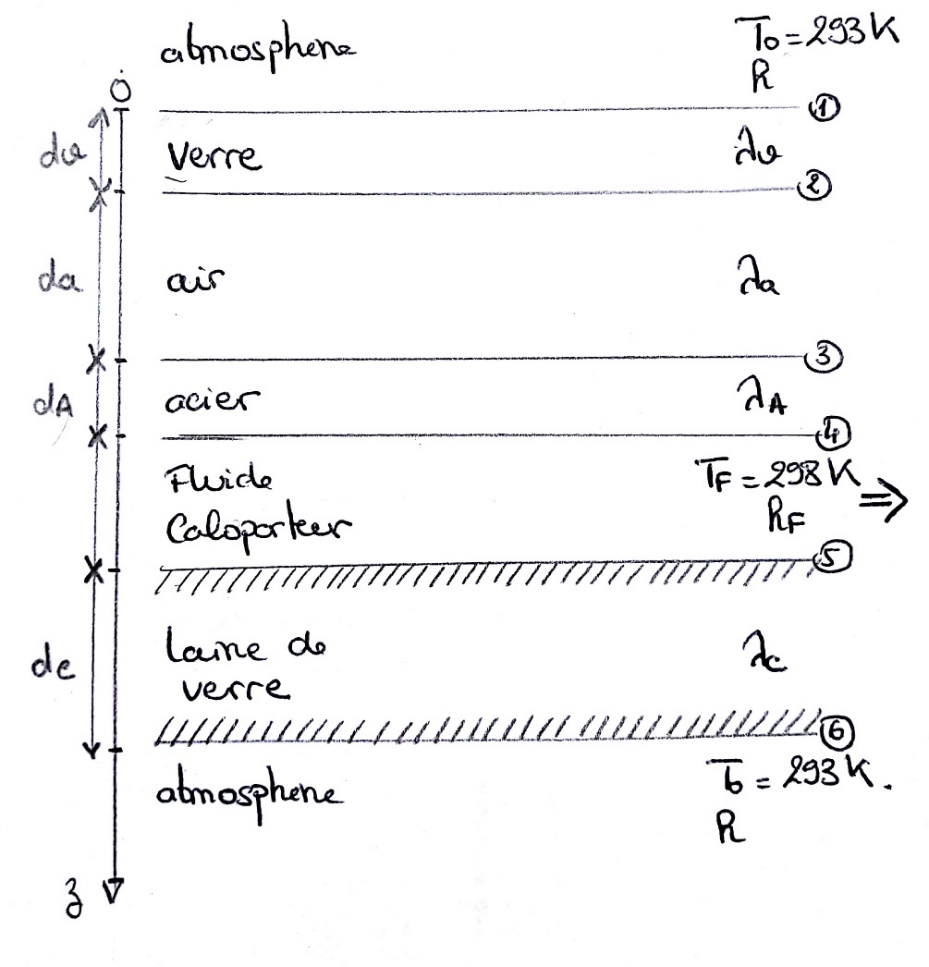 atmosphere
T₀ = 293 K
h
O
①
dv
Verre
λv
②
da
air
λa
③
dA
acier
λA
④
Fluide
Caloporteur
TF = 298 K ⇒
hF
⑤
dc
laine de
verre
λc
⑥
atmosphere
T₀ = 293 K.
h
z